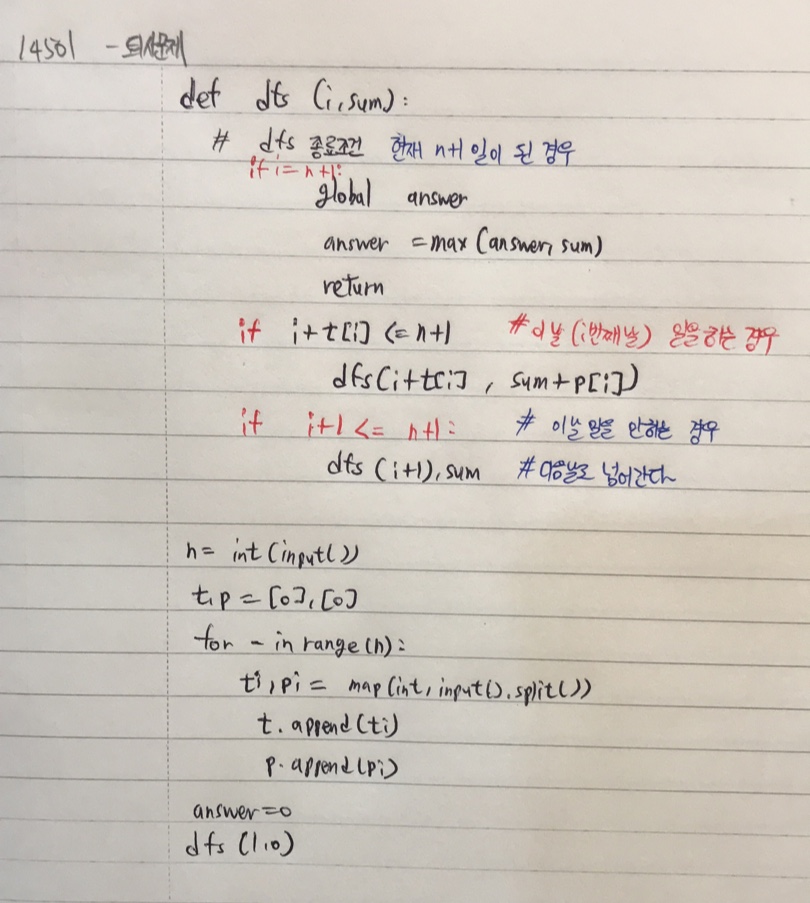 14501 - 퇴사문제
def dfs (i, sum):
# dfs 종료조건 현재 n+1 일이 된 경우
if i = n+1:
global answer
answer = max (answer, sum)
return
if i+t[i] <= n+1 # 이날 (i번째날) 일을 하는 경우
dfs(i+t[i], sum+p[i])
if i+1 <= n+1: # 이날 일을 안하는 경우
dfs (i+1), sum # 다음날로 넘어간다
n= int (input())
t, p = [0], [0]
for - in range (n):
ti, pi = map(int, input().split())
t. append (ti)
p. append (pi)
answer=0
dfs (1,0)